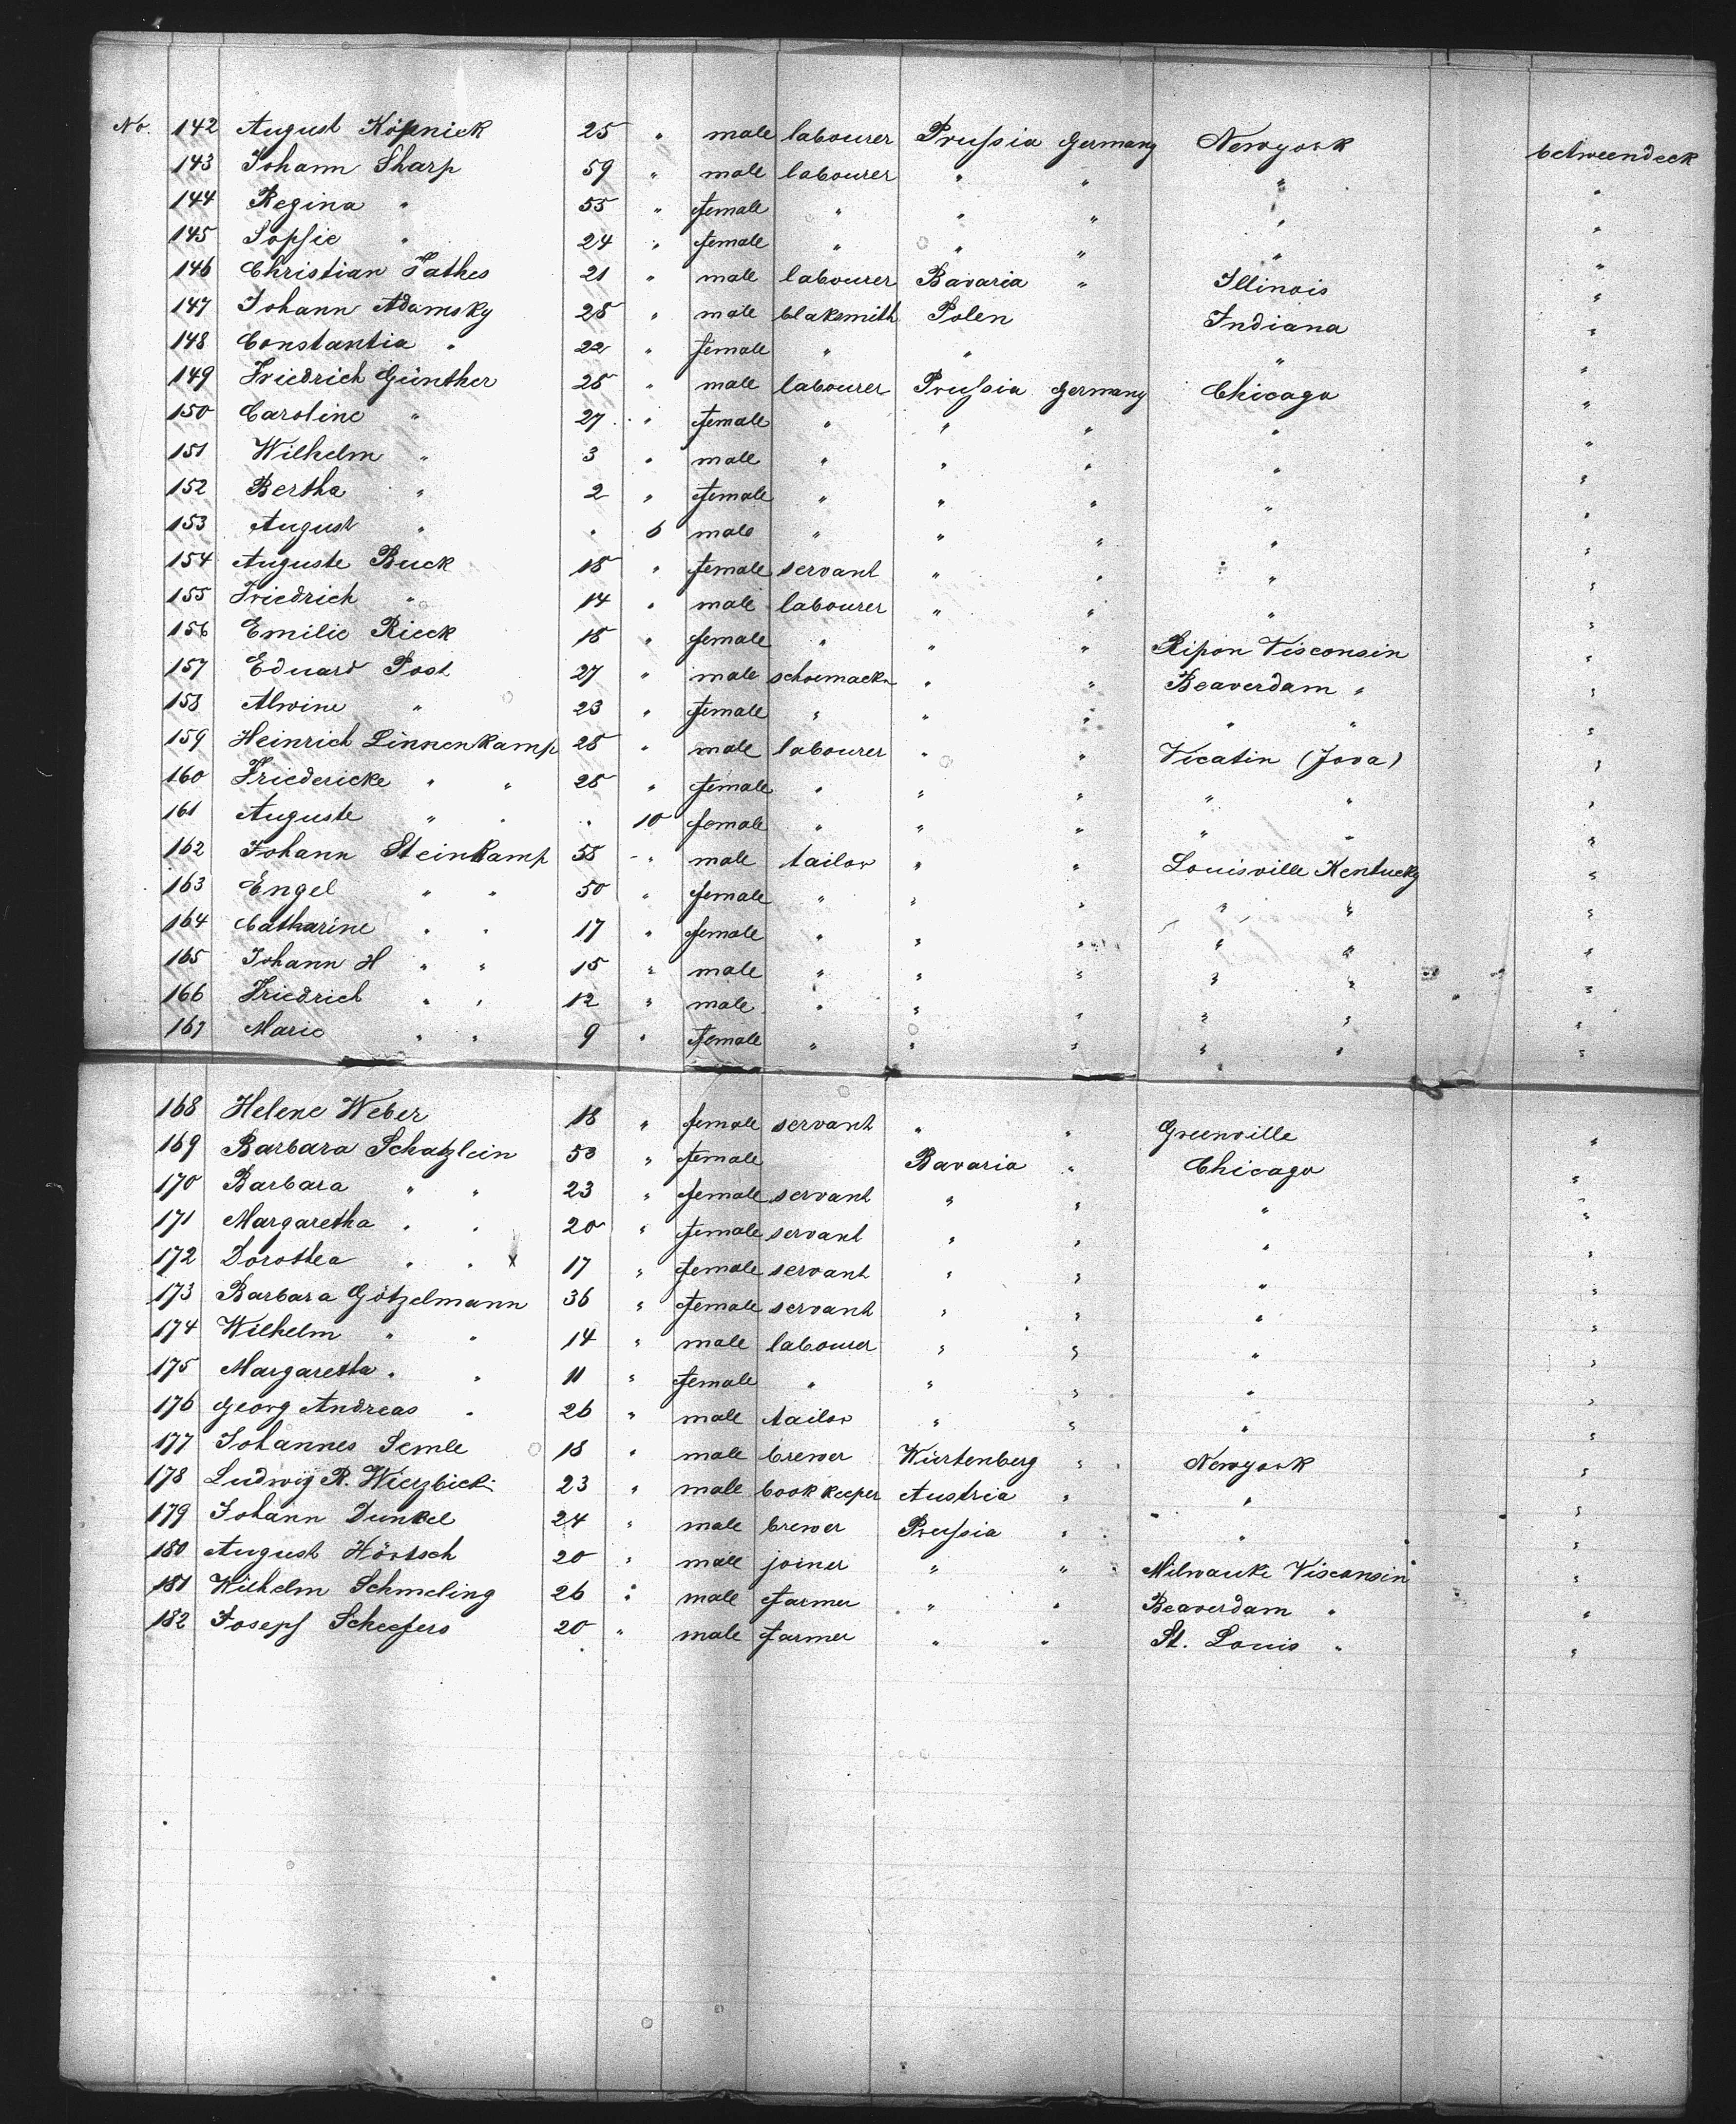 No. 142 August Köpnick 25 " male labourer Prussia Germany Newyork betweendeck
143 Johann Sharp 59 " male labourer " " " "
144 Regina " 55 " female " " " " "
145 Sopfie " 24 " female " " " " "
146 Christian Fathes 21 " male labourer Bavaria " Illinois "
147 Johann Adamsky 28 " male blaksmith Polen Indiana "
148 Constantia " 22 " female " " " "
149 Friedrich Günther 28 " male labourer Prussia Germany Chicago "
150 Caroline " 27 " female " " " " "
151 Wilhelm " 3 " male " " " " "
152 Bertha " 2 " female " " " " "
153 August " " 6 male " " " " "
154 Auguste Buck 18 " female servant " " " "
155 Friedrich " 14 " male labourer " " " "
156 Emilie Rieck 18 " female " " " Ripon Visconsin "
157 Eduard Post 27 " male schoemacker " " Beaverdam " "
158 Alwine " 23 " female " " " " " "
159 Heinrich Linnenkamp 28 " male labourer " " Vicatin (Jova) "
160 Friedericke " " 28 " female " " " " " "
161 Auguste " " " 10 female " " " " " "
162 Johann Steinkamp 58 " male tailor " " Louisville Kentucky "
163 Engel " " 50 " female " " " " " "
164 Catharine " " 17 " female " " " " " "
165 Johann H " " 15 " male " " " " " "
166 Friedrich " " 12 " male " " " " " "
167 Marie " " 9 " female " " " " " "
168 Helene Weber 18 " female servant " " Greenville "
169 Barbara Schatzlein 53 " female Bavaria " Chicago "
170 Barbara " " 23 " female servant " " " "
171 Margaretha " " 20 " female servant " " " "
172 Dorothea " " x 17 " female servant " " " "
173 Barbara Götzelmann 36 " female servant " " " "
174 Wilhelm " " 14 " male labourer " " " "
175 Margaretha " " 11 " female " " " " "
176 Georg Andreas " 26 " male tailor " " " "
177 Johannes Semle 18 " male brewer Würtenberg " Newyork "
178 Ludwig R. Wierzbicki 23 " male bookkeeper Austria " " "
179 Johann Dunkel 24 " male brewer Prussia " " "
180 August Hörtsch 20 " male joiner " " Milwauke Visconsin "
181 Wilhelm Schmeling 26 " male farmer " " Beaverdam " "
182 Josepf Scheefers 20 " male farmer " " St. Louis " "